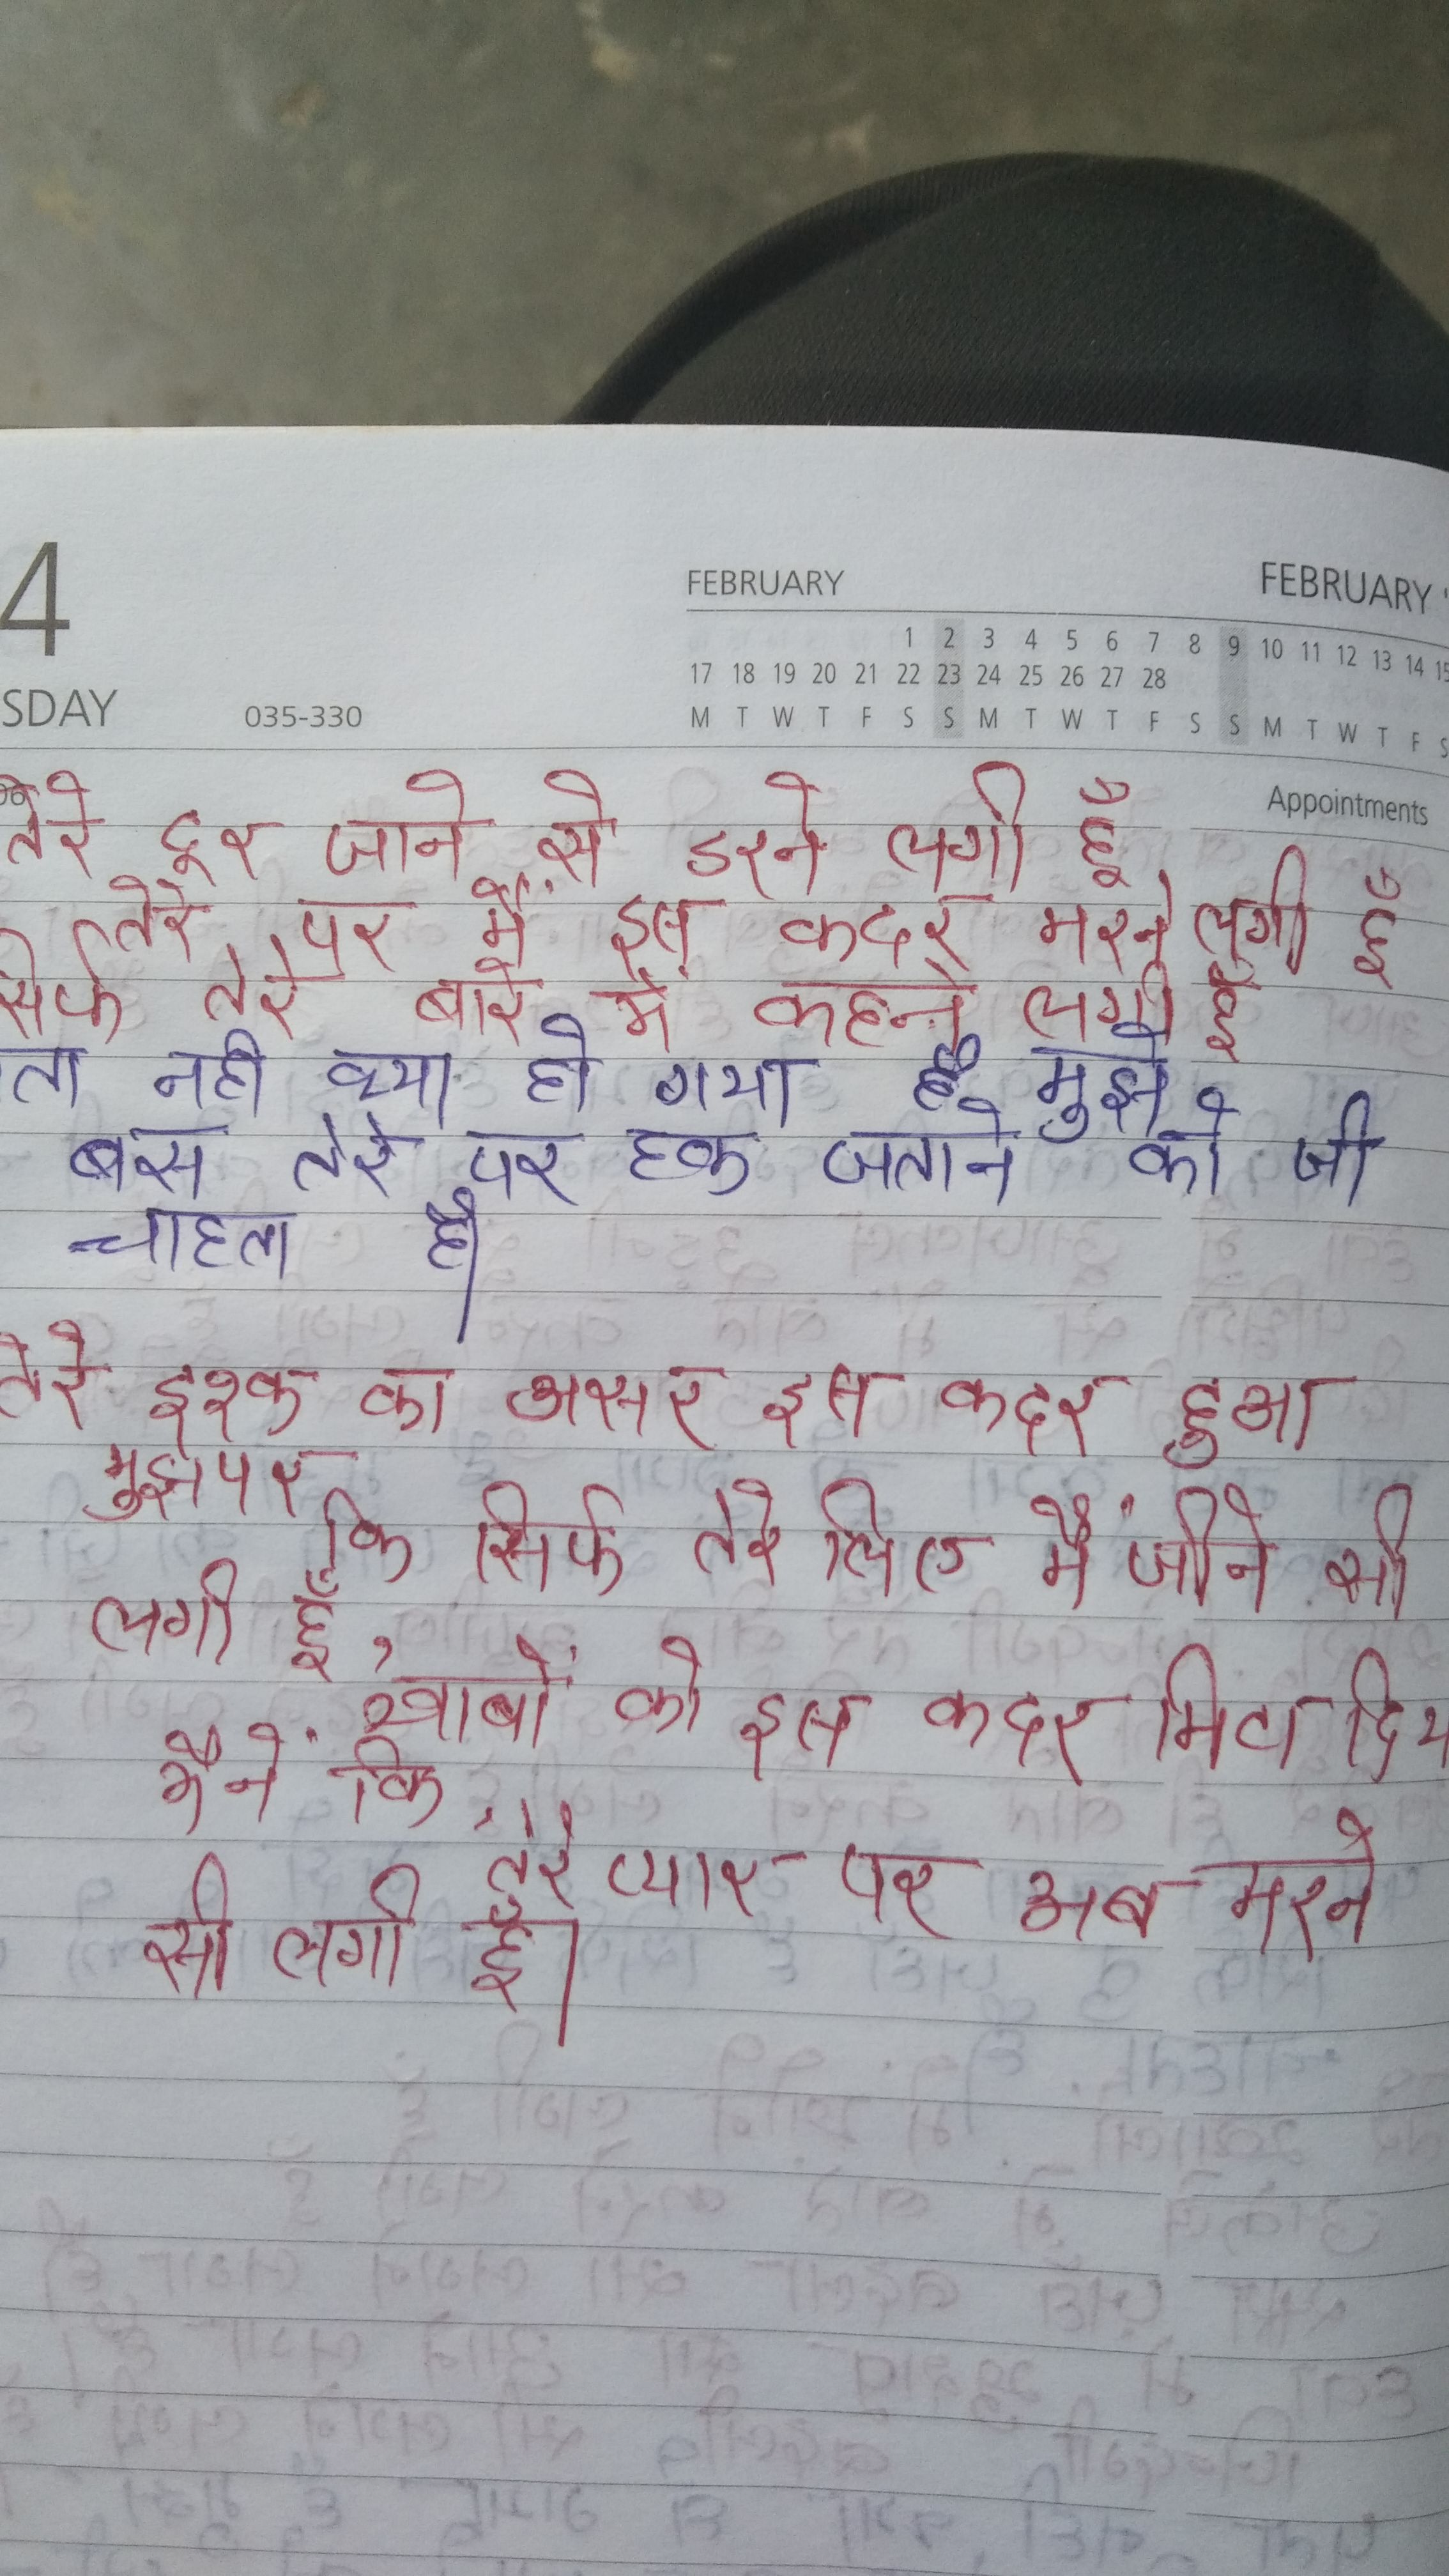 4
FEBRUARY
FEBRUARY
1 2 3 4 5 6 7 8 9 10 11 12 13 14 15
17 18 19 20 21 22 23 24 25 26 27 28
SDAY 035-330
M T W T F S S M T W T F S S M T W T F S
Appointments
तेरे दूर जाने से डरने लगी हूँ
तेरे पर मैं इस कदर मरने लगी हूँ
सिर्फ तेरे बारे में कहने लगी हूँ
ता नही क्या हो गया है मुझे
बस तेरे पर हक जताने को जी
चाहता है।
तेरे इश्क का असर इस कदर हुआ
मुझपर
कि सिर्फ तेरे लिए मैं जीने सी
लगी हूँ,
ख्वाबों को इस कदर मिटा दिय
मैनें कि
तेरे प्यार पर अब मरने
सी लगी हूँ।